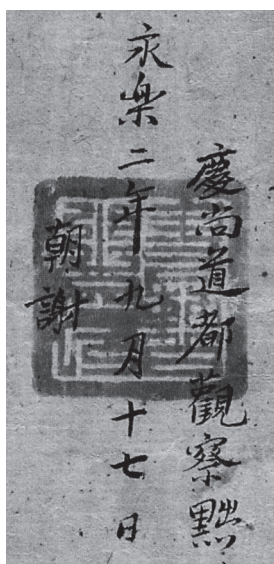 慶尚道都觀察黜
永樂二年九月十七日
朝謝